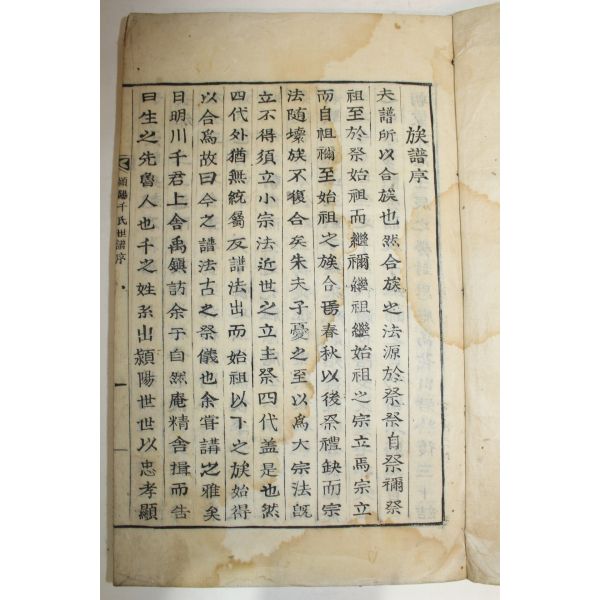 族譜序
夫譜所以合族也然合族之法源於祭祭自祭禰祭
祖至於祭始祖而繼禰繼祖繼始祖之宗立焉宗立
而自祖禰至始祖之族合焉春秋以後祭禮缺而宗
法隨壞族不復合矣朱夫子憂之至以爲大宗法旣
立不得須立小宗法近世之立主祭四代盖是也然
四代外猶無統屬及譜法出而始祖以下之族始得
以合焉故曰今之譜法古之祭儀也余甞講之雅矣
日明川千君上舍禹鎭訪余于自然庵精舍揖而告
曰生之先魯人也千之姓系出潁陽世世以忠孝顯
潁陽千氏世譜序